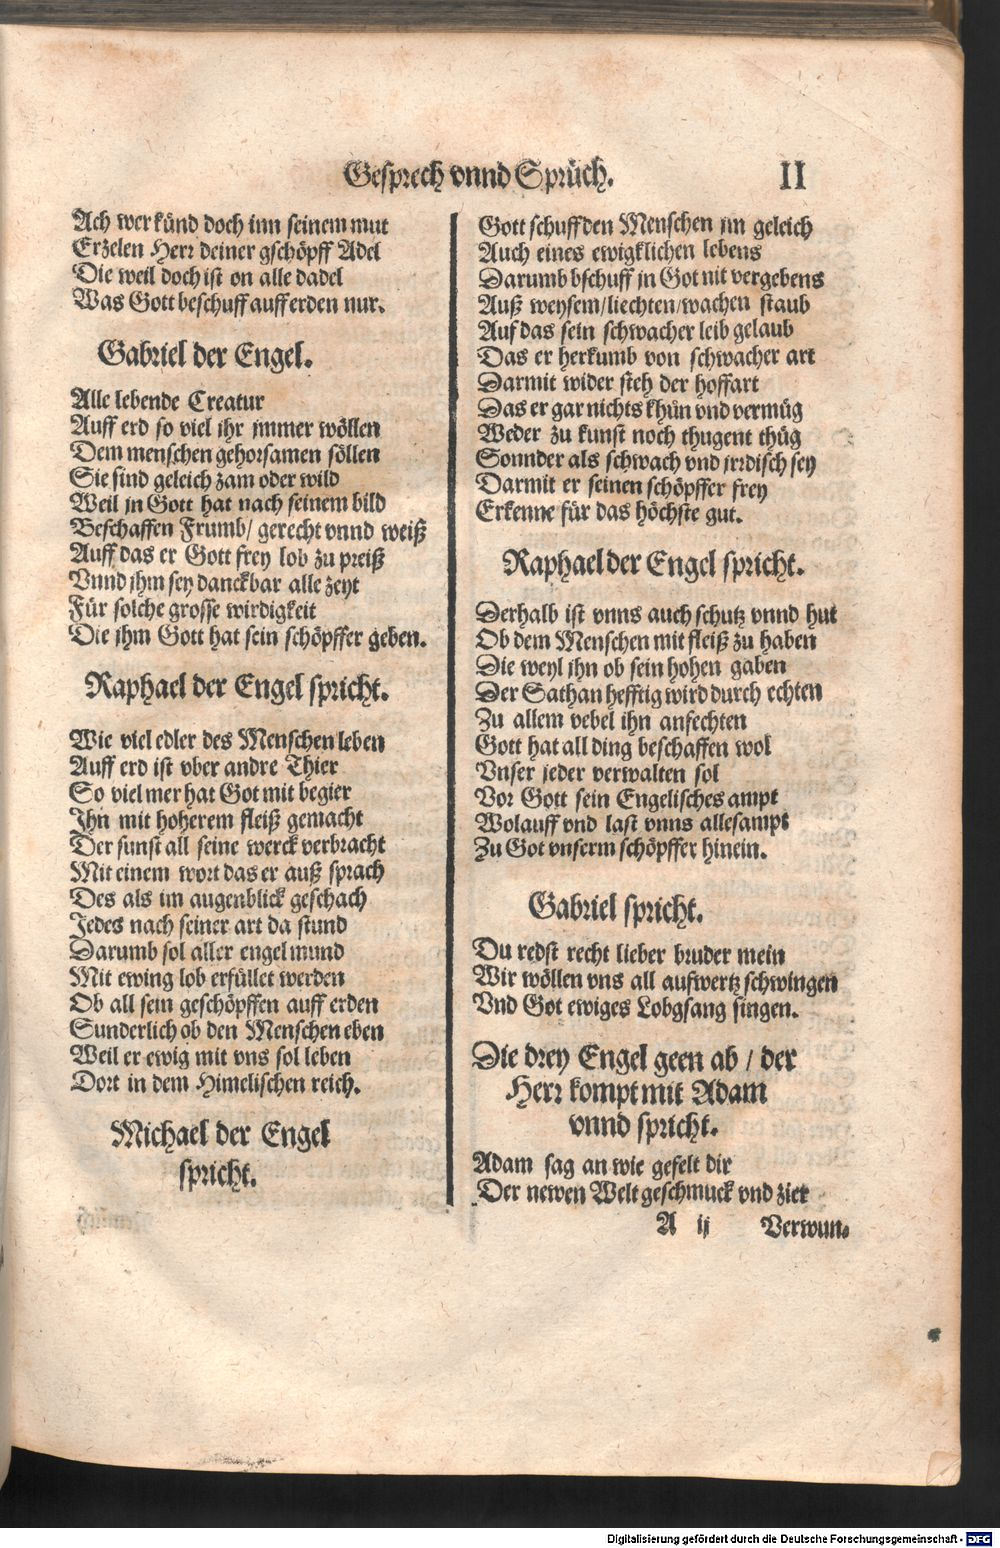 Gesprech vnnd Sprüch. II
Ach wer künd doch inn seinem mut
Erzelen Herr deiner gschöpff Adel
Die weil doch ist on alle dadel
Was Gott beschuff auff erden nur.
Gabriel der Engel.
Alle lebende Creatur
Auff erd so viel ihr jmmer wöllen
Dem menschen gehorsamen söllen
Sie sind geleich zam oder wild
Weil jn Gott hat nach seinem bild
Beschaffen Frumb/ gerecht vnnd weiß
Auff das er Gott frey lob zu preiß
Vnnd jhm sey danckbar alle zeyt
Für solche grosse wirdigkeit
Die ihm Gott hat sein schöpffer geben.
Raphael der Engel spricht.
Wie viel edler des Menschen leben
Auff erd ist vber andre Thier
So viel mer hat Got mit begier
Ihn mit hoherem fleiß gemacht
Der sunst all seine werck verbracht
Mit einem wort das er auß sprach
Des als im augenblick geschach
Jedes nach seiner art da stund
Darumb sol aller engel mund
Mit ewing lob erfüllet werden
Ob all sein geschöpffen auff erden
Sunderlich ob den Menschen eben
Weil er ewig mit vns sol leben
Dort in dem Himelischen reich.
Michael der Engel
spricht.
Gott schuff den Menschen jm geleich
Auch eines ewigklichen lebens
Darumb bschuff jn Got nit vergebens
Auß weysem/liechten/wachen staub
Auf das sein schwacher leib gelaub
Das er herkumb von schwacher art
Darmit wider steh der hoffart
Das er gar nichts khün vnd vermüg
Weder zu kunst noch thugent thüg
Sonnder als schwach vnd jrrdisch sey
Darmit er seinen schöpffer frey
Erkenne für das höchste gut.
Raphael der Engel spricht.
Derhalb ist vnns auch schutz vnnd hut
Ob dem Menschen mit fleiß zu haben
Die weyl jhn ob sein hohen gaben
Der Sathan hefftig wird durch echten
Zu allem vebel ihn anfechten
Gott hat all ding beschaffen wol
Vnser jeder verwalten sol
Vor Gott sein Engelisches ampt
Wolauff vnd last vnns allesampt
Zu Got vnserm schöpffer hinein.
Gabriel spricht.
Du redst recht lieber bruder mein
Wir wöllen vns all aufwertz schwingen
Vnd Got ewiges Lobgsang singen.
Die drey Engel geen ab / der
Herr kompt mit Adam
vnnd spricht.
Adam sag an wie gefelt dir
Der newen Welt geschmuck vnd zier
A ij Verwun-
Digitalisierung gefördert durch die Deutsche Forschungsgemeinschaft - DFG